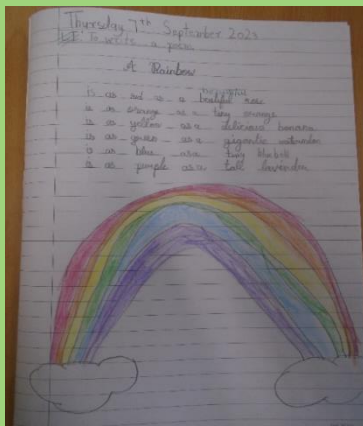 Thursday 7th September 2023
LI: To write a poem.
A Rainbow
is as red as a beautiful rose
is as orange as a orange
is as yellow as a delicious banana
is as green as a gigantic
is as blue as a bluebell
is as purple as a tall lavender